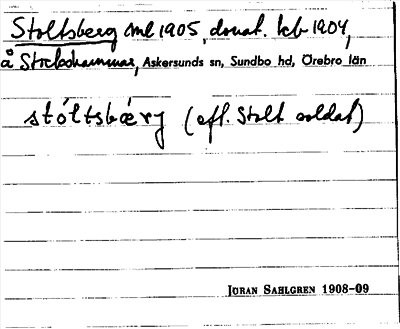 Stoltsberg ml 1905, domat. kb 1904,
å Stockshammar, Askersunds sn, Sundbo hd, Örebro län
stóltsbæry (efl. Stolt soldat)
JÖRAN SAHLGREN 1908-09